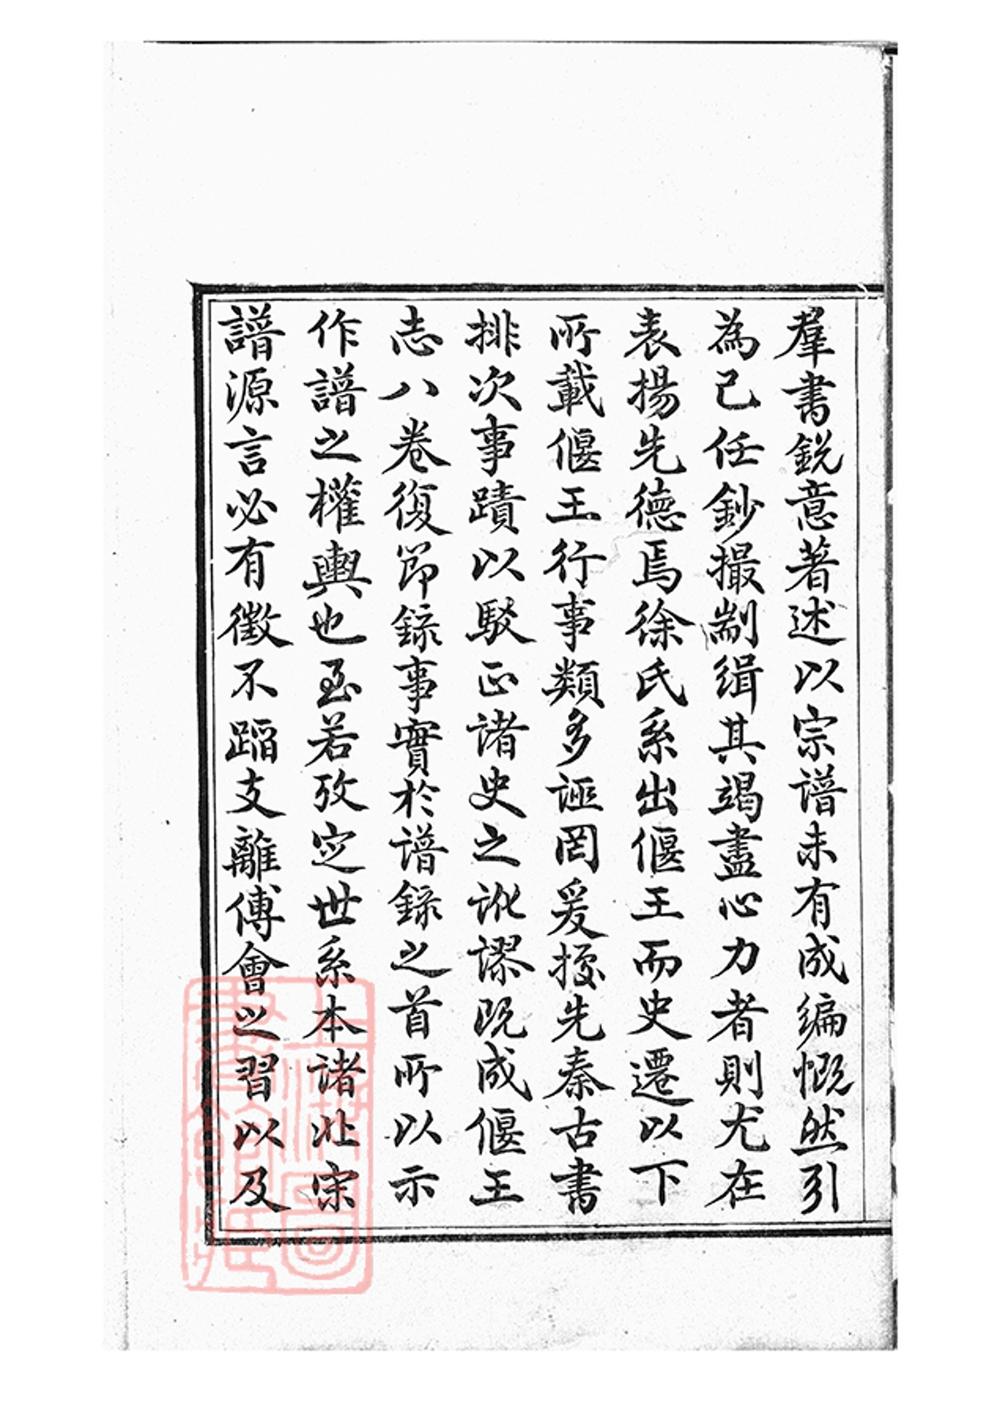 羣書銳意著述以宗譜未有成編慨然引
為己任鈔撮剬緝其竭盡心力者則尤在
表揚先德焉徐氏系出偃王而史遷以下
所載偃王行事類多誣罔爰據先秦古書
排次事蹟以駁正諸史之訛謬既成偃王
志八卷復節錄事實於譜錄之首所以示
作譜之權輿也至若攷定世系本諸北宋
譜源言必有徵不蹈支離傅會之習以及
上海圖書館藏